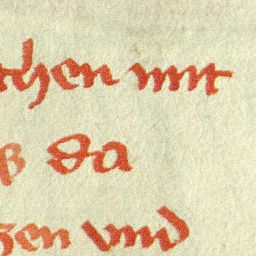 chen mit
ß da
zen vnd